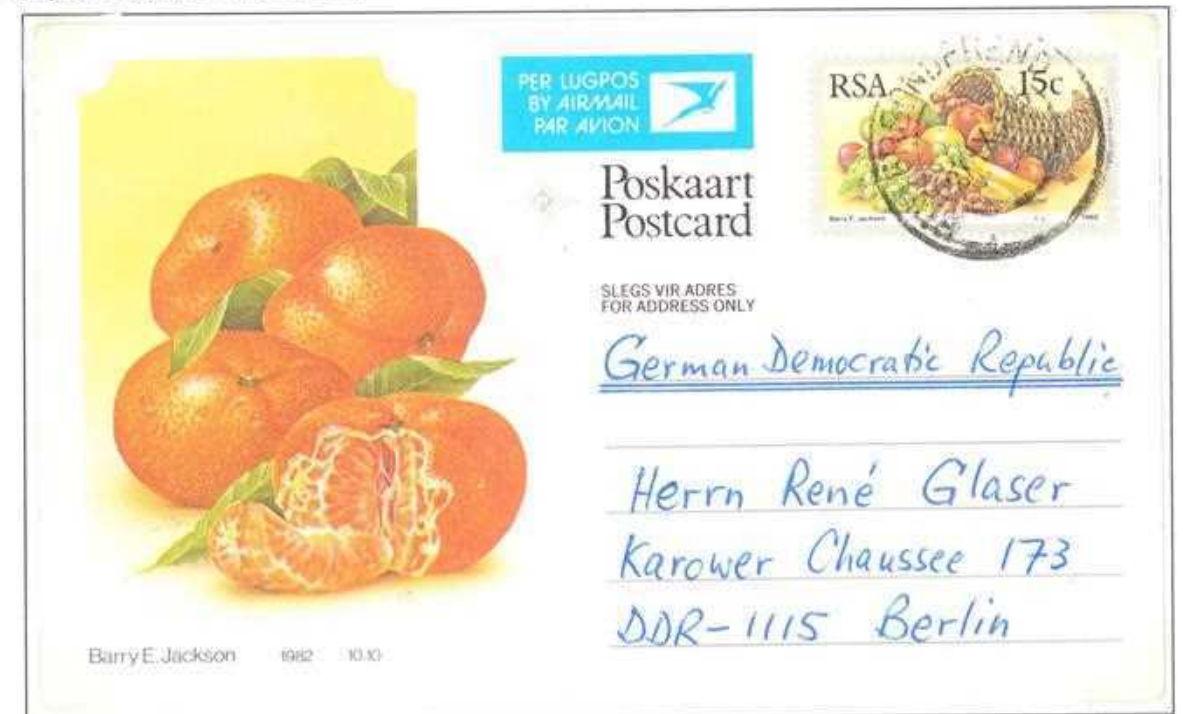 PER LUGPOS
BY AIRMAIL
PAR AVION
RSA 15c
Barry E. Jackson 1982
Poskaart
Postcard
SLEGS VIR ADRES
FOR ADDRESS ONLY
German Democratic Republic
Herrn René Glaser
Karower Chaussee 173
DDR-1115 Berlin
Barry E. Jackson 1982 10.10